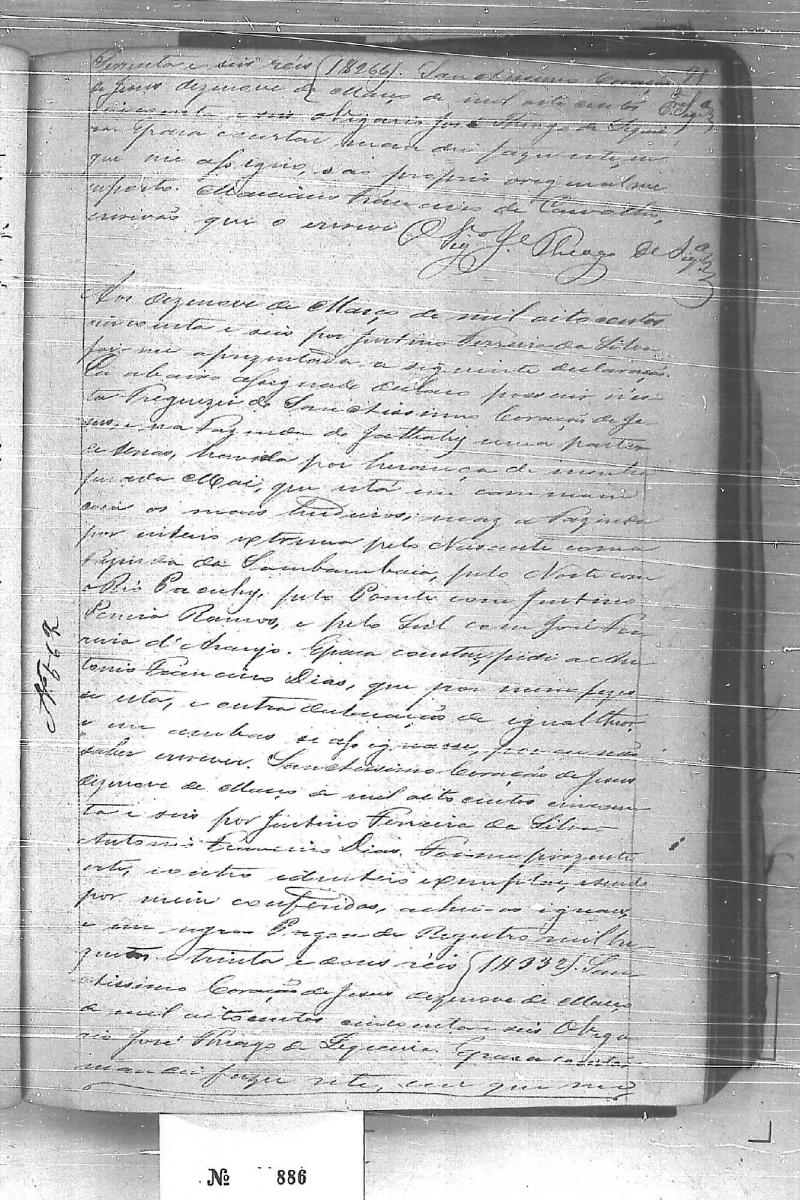 Secenta e seis réis (1$266). Sanctissimo Coração
de Jesus dezenove de Março de mil oito centos
cincoenta e seis o Vigario José Thiago de Siquei-
ra. E para constar mandei fazer este, em
que me assigno, sas proprio original me
reporto. Francisco de Carvalho,
escrivão que o escrevi O Vigrº Jᵉ Thiago de Siqrª
Aos dezenove de Março de mil oitocentos
cincoenta e seis por Justino Ferreira da Silva
foi me aprezentada a seguinte declaração.
Eu abaixo assignado declaro possuir nes-
ta Freguezia do Sanctissimo Coração de Je-
sus e na Fazenda do Jatháhy uma parte
de terras, havida por herança de minha
finada Mai, que está em commum
com os mais herdeiros; maz a Fazenda
por inteiro extrema pelo Nascente com a
Fazenda da Sambambaia, pelo Norte com
o Rio Pacuhy, pelo Poente com Justino
Pereira Ramos, e pelo Sul com José Fer-
reira d'Araujo. E para constar, pedi a An-
tonio Francisco Dias, que por mim fizes-
se esta, e outra declaração de igual theor,
e em ambas se assignasse, por eu não
saber escrever. Sanctissimo Coração de Jesus
dezenove de Março de mil oito centos cincoen-
ta e seis por Justino Ferreira da Silva
Antonio Francisco Dias. Foi me prezente
este, e outro identico exemplar, e sendo
por mim conferidos, achei-os iguaes,
e em regra Pagou de Registro mil tre-
zentos e trinta e dous réis (1$332). San-
ctissimo Coração de Jesus dezenove de Março
de mil oito centos cincoenta e seis O Viga-
rio José Thiago de Siqueira. E para constar
mandei fazer este, em que me
Nº 662
Nº 886